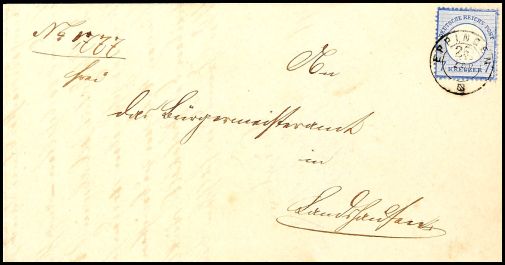 No 1777
frei
An
das Bürgermeisteramt
in
Landshausen
DEUTSCHE REICHS-POST
KREUZER
EPPINGEN